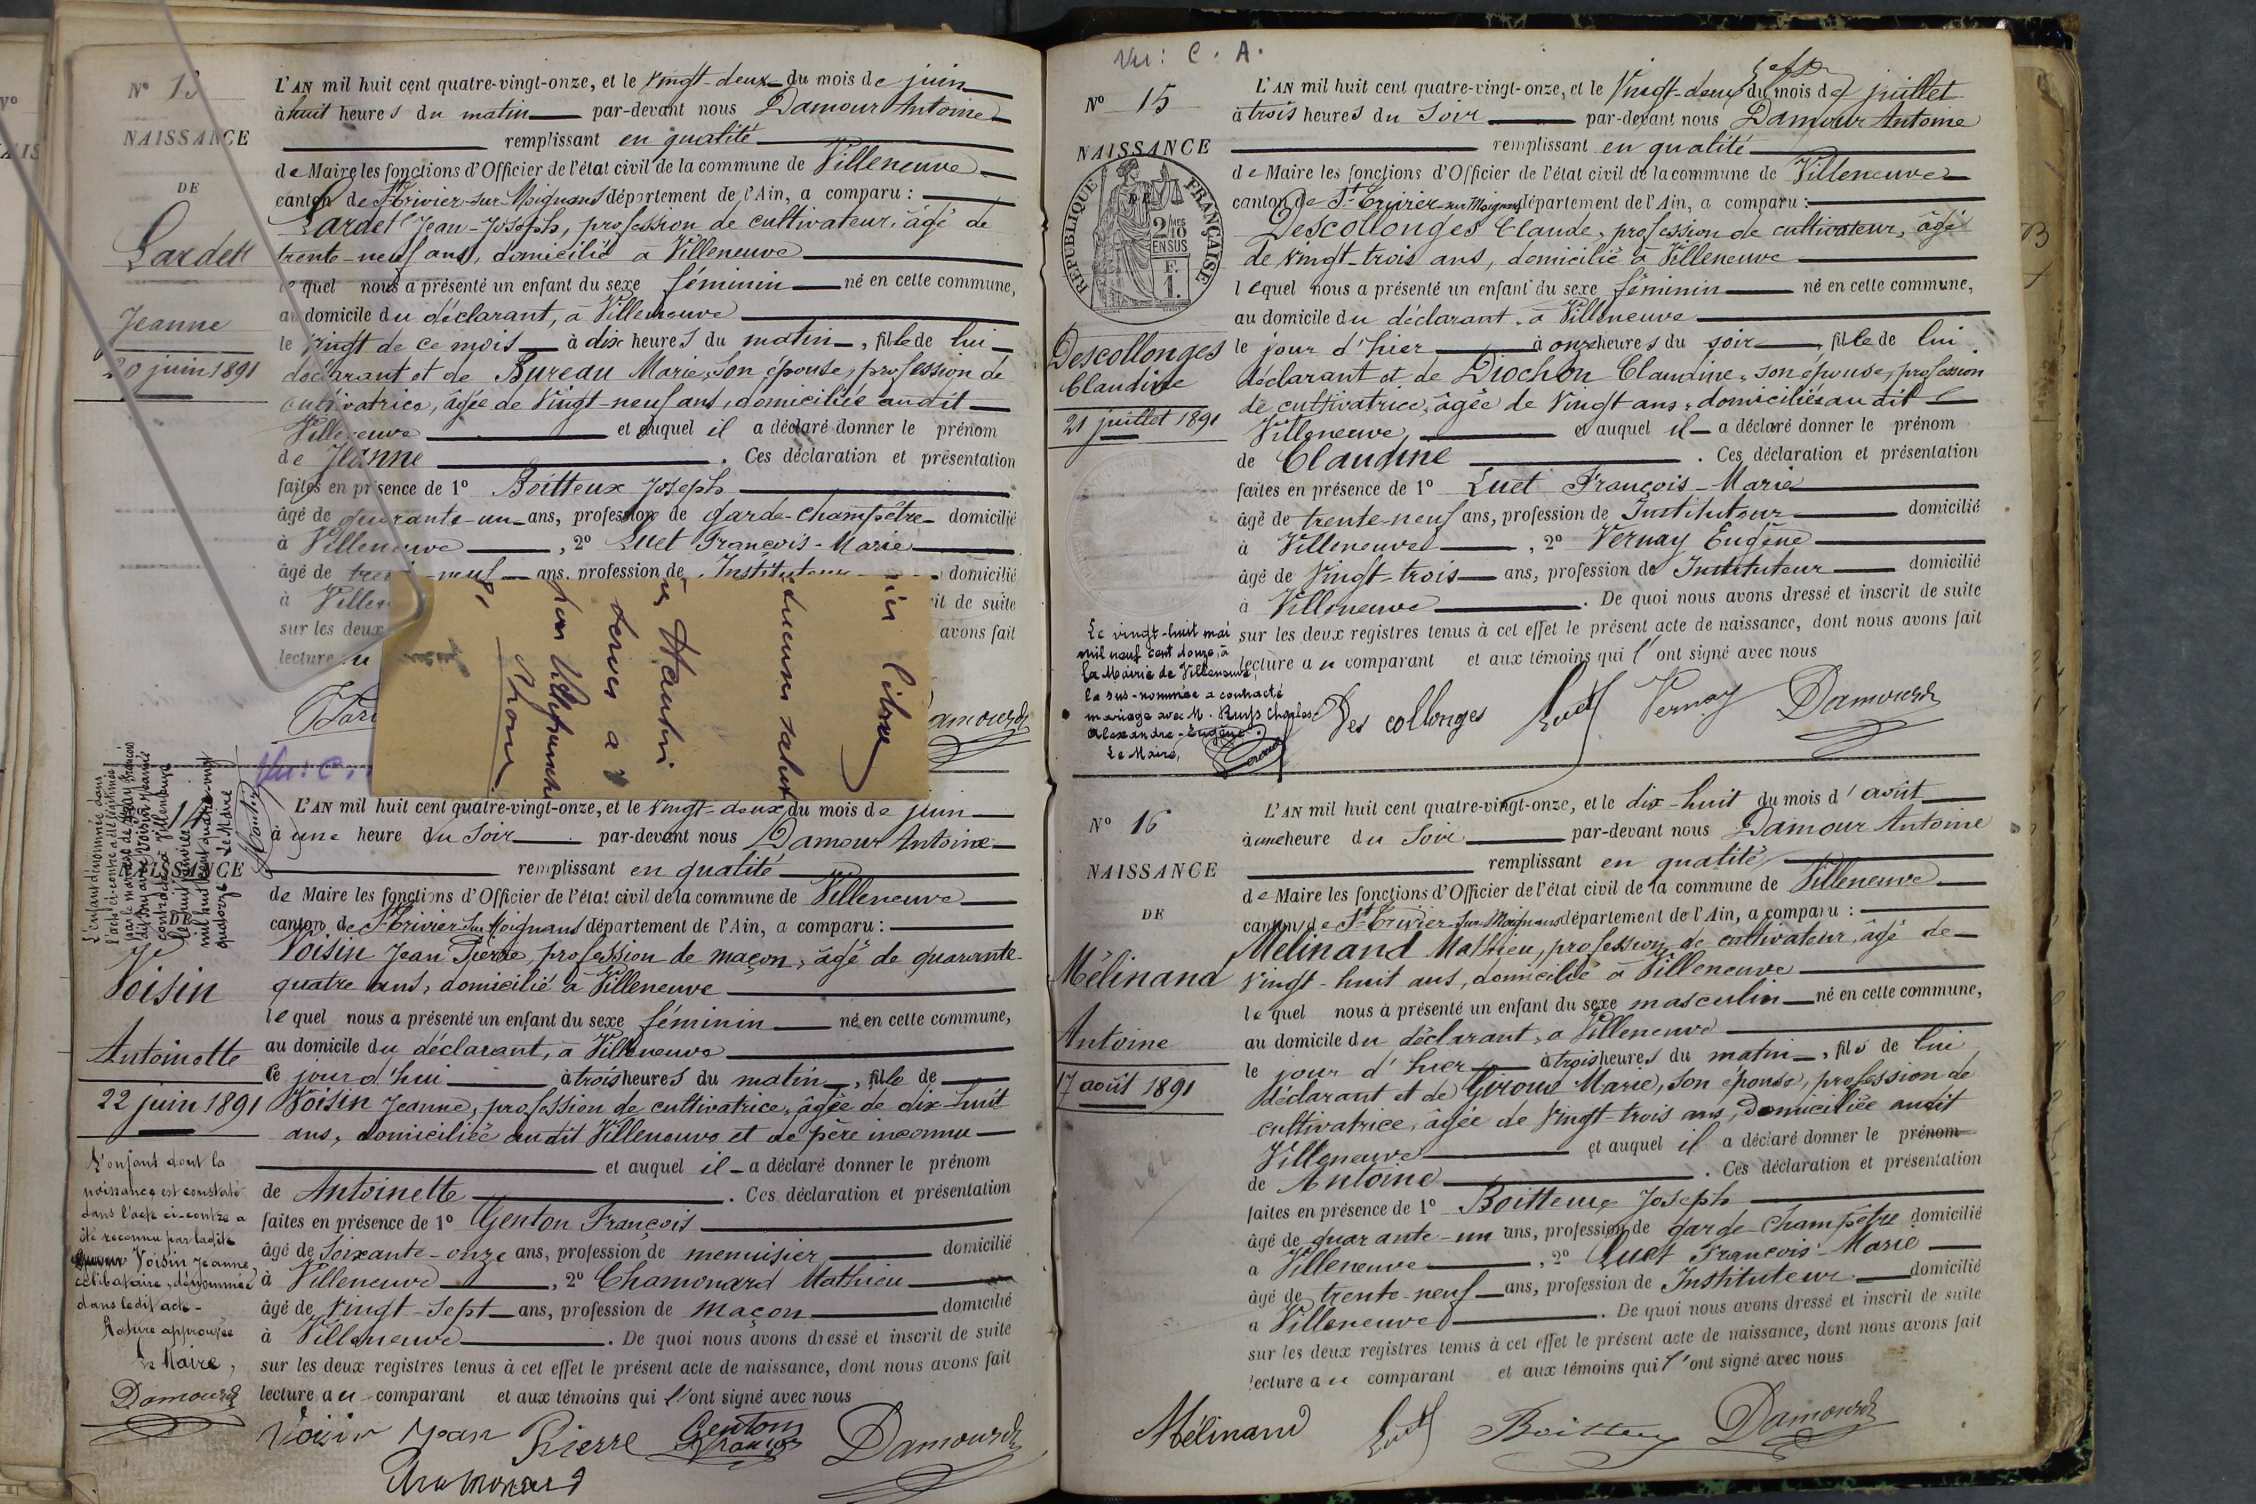 N° 13
NAISSANCE
DE
Lardet
Jeanne
20 juin 1891
L'AN mil huit cent quatre-vingt-onze, et le vingt-deux du mois de juin
à huit heures du matin par-devant nous Damour Antoine
remplissant en qualité
de Maire les fonctions d'Officier de l'état civil de la commune de Villeneuve
canton de St Trivier-sur-Moignans département de l'Ain, a comparu :
Lardet Jean-Joseph, profession de cultivateur, âgé de
trente-neuf ans, domicilié à Villeneuve
lequel nous a présenté un enfant du sexe féminin né en cette commune,
au domicile du déclarant, à Villeneuve
le vingt de ce mois à dix heures du matin, fille de lui
déclarant et de Bureau Marie, son épouse, profession de
cultivatrice, âgée de vingt-neuf ans, domiciliée audit
Villeneuve et auquel il a déclaré donner le prénom
de Jeanne . Ces déclaration et présentation
faites en présence de 1° Boitteux Joseph
âgé de quarante-un ans, profession de garde-champêtre domicilié
à Villeneuve , 2° Luet François-Marie
âgé de -neuf ans, profession de Instituteur domicilié
à Villen it de suite
sur les deux avons fait
lecture au
Damour
Vu : C.
14
NAISSANCE
L'enfant dénommée dans
l'acte ci-contre a été légitimée
par le mariage de François
contracté à Villeneuve
le huit janvier
mil huit cent quatre-vingt
quatorze le Maire
Voisin
Antoinette
22 juin 1891
L'enfant dont la
naissance est constatée
dans l'acte ci-contre a
été reconnu par ladite
Voisin Jeanne,
célibataire, dénommée
dans ledit acte.
Rature approuvée
Le Maire,
Damour
L'AN mil huit cent quatre-vingt-onze, et le vingt-deux du mois de juin
à une heure du soir par-devant nous Damour Antoine
remplissant en qualité
de Maire les fonctions d'Officier de l'état civil de la commune de Villeneuve
canton de St Trivier-sur-Moignans département de l'Ain, a comparu :
Voisin Jean Pierre, profession de maçon, âgé de quarante-
quatre ans, domicilié à Villeneuve
lequel nous a présenté un enfant du sexe féminin né en cette commune,
au domicile du déclarant, à Villeneuve
ce jourd'hui à trois heures du matin, fille de
Voisin Jeanne, profession de cultivatrice, âgée de dix-huit
ans, domiciliée audit Villeneuve et de père inconnu
et auquel il a déclaré donner le prénom
de Antoinette . Ces déclaration et présentation
faites en présence de 1° Genton François
âgé de soixante-onze ans, profession de menuisier domicilié
à Villeneuve , 2° Chamonard Mathieu
âgé de vingt-sept ans, profession de maçon domicilié
à Villeneuve . De quoi nous avons dressé et inscrit de suite
sur les deux registres tenus à cet effet le présent acte de naissance, dont nous avons fait
lecture au comparant et aux témoins qui l'ont signé avec nous
Voisin Jean Pierre Genton François Damour
Chamonard
Vu : C. A.
N° 15
NAISSANCE
DE
RÉPUBLIQUE FRANÇAISE
2/10
EN SUS
F.
1.
Descollonges
Claudine
21 juillet 1891
L'AN mil huit cent quatre-vingt-onze, et le vingt-deux du mois de juillet
à trois heures du soir par-devant nous Damour Antoine
remplissant en qualité
de Maire les fonctions d'Officier de l'état civil de la commune de Villeneuve
canton de St Trivier-sur-Moignans département de l'Ain, a comparu :
Descollonges Claude, profession de cultivateur, âgé
de vingt-trois ans, domicilié à Villeneuve
lequel nous a présenté un enfant du sexe féminin né en cette commune,
au domicile du déclarant, à Villeneuve
le jour d'hier à onze heures du soir, fille de lui
déclarant et de Diochon Claudine, son épouse, profession
de cultivatrice, âgée de vingt ans, domiciliés au dit
Villeneuve, et auquel il a déclaré donner le prénom
de Claudine . Ces déclaration et présentation
faites en présence de 1° Luet François-Marie
âgé de trente-neuf ans, profession de Instituteur domicilié
à Villeneuve , 2° Vernay Eugène
âgé de vingt-trois ans, profession de Instituteur domicilié
à Villeneuve . De quoi nous avons dressé et inscrit de suite
sur les deux registres tenus à cet effet le présent acte de naissance, dont nous avons fait
lecture au comparant et aux témoins qui l'ont signé avec nous
Des collonges Luet Vernay Damour
Le vingt-huit mai
mil neuf cent douze, à
la Mairie de Villeneuve,
la sus-nommée a contracté
mariage avec M. Ruys Charles
Alexandre-Eugène.
Le Maire,
N° 16
NAISSANCE
DE
Mélinand
Antoine
17 août 1891
L'AN mil huit cent quatre-vingt-onze, et le dix-huit du mois d'août
à une heure du soir par-devant nous Damour Antoine
remplissant en qualité
de Maire les fonctions d'Officier de l'état civil de la commune de Villeneuve
canton de St Trivier-sur-Moignans département de l'Ain, a comparu :
Mélinand Mathieu, profession de cultivateur, âgé de
vingt-huit ans, domicilié à Villeneuve
lequel nous a présenté un enfant du sexe masculin né en cette commune,
au domicile du déclarant, à Villeneuve
le jour d'hier à trois heures du matin, fils de lui
déclarant et de Giroud Marie, son épouse, profession de
cultivatrice, âgée de vingt-trois ans, domiciliée audit
Villeneuve et auquel il a déclaré donner le prénom
de Antoine . Ces déclaration et présentation
faites en présence de 1° Boitteux Joseph
âgé de quarante-un ans, profession de garde-champêtre domicilié
à Villeneuve , 2° Luet François-Marie
âgé de trente-neuf ans, profession de Instituteur domicilié
à Villeneuve . De quoi nous avons dressé et inscrit de suite
sur les deux registres tenus à cet effet le présent acte de naissance, dont nous avons fait
lecture au comparant et aux témoins qui l'ont signé avec nous
Mélinand Luet Boitteux Damour